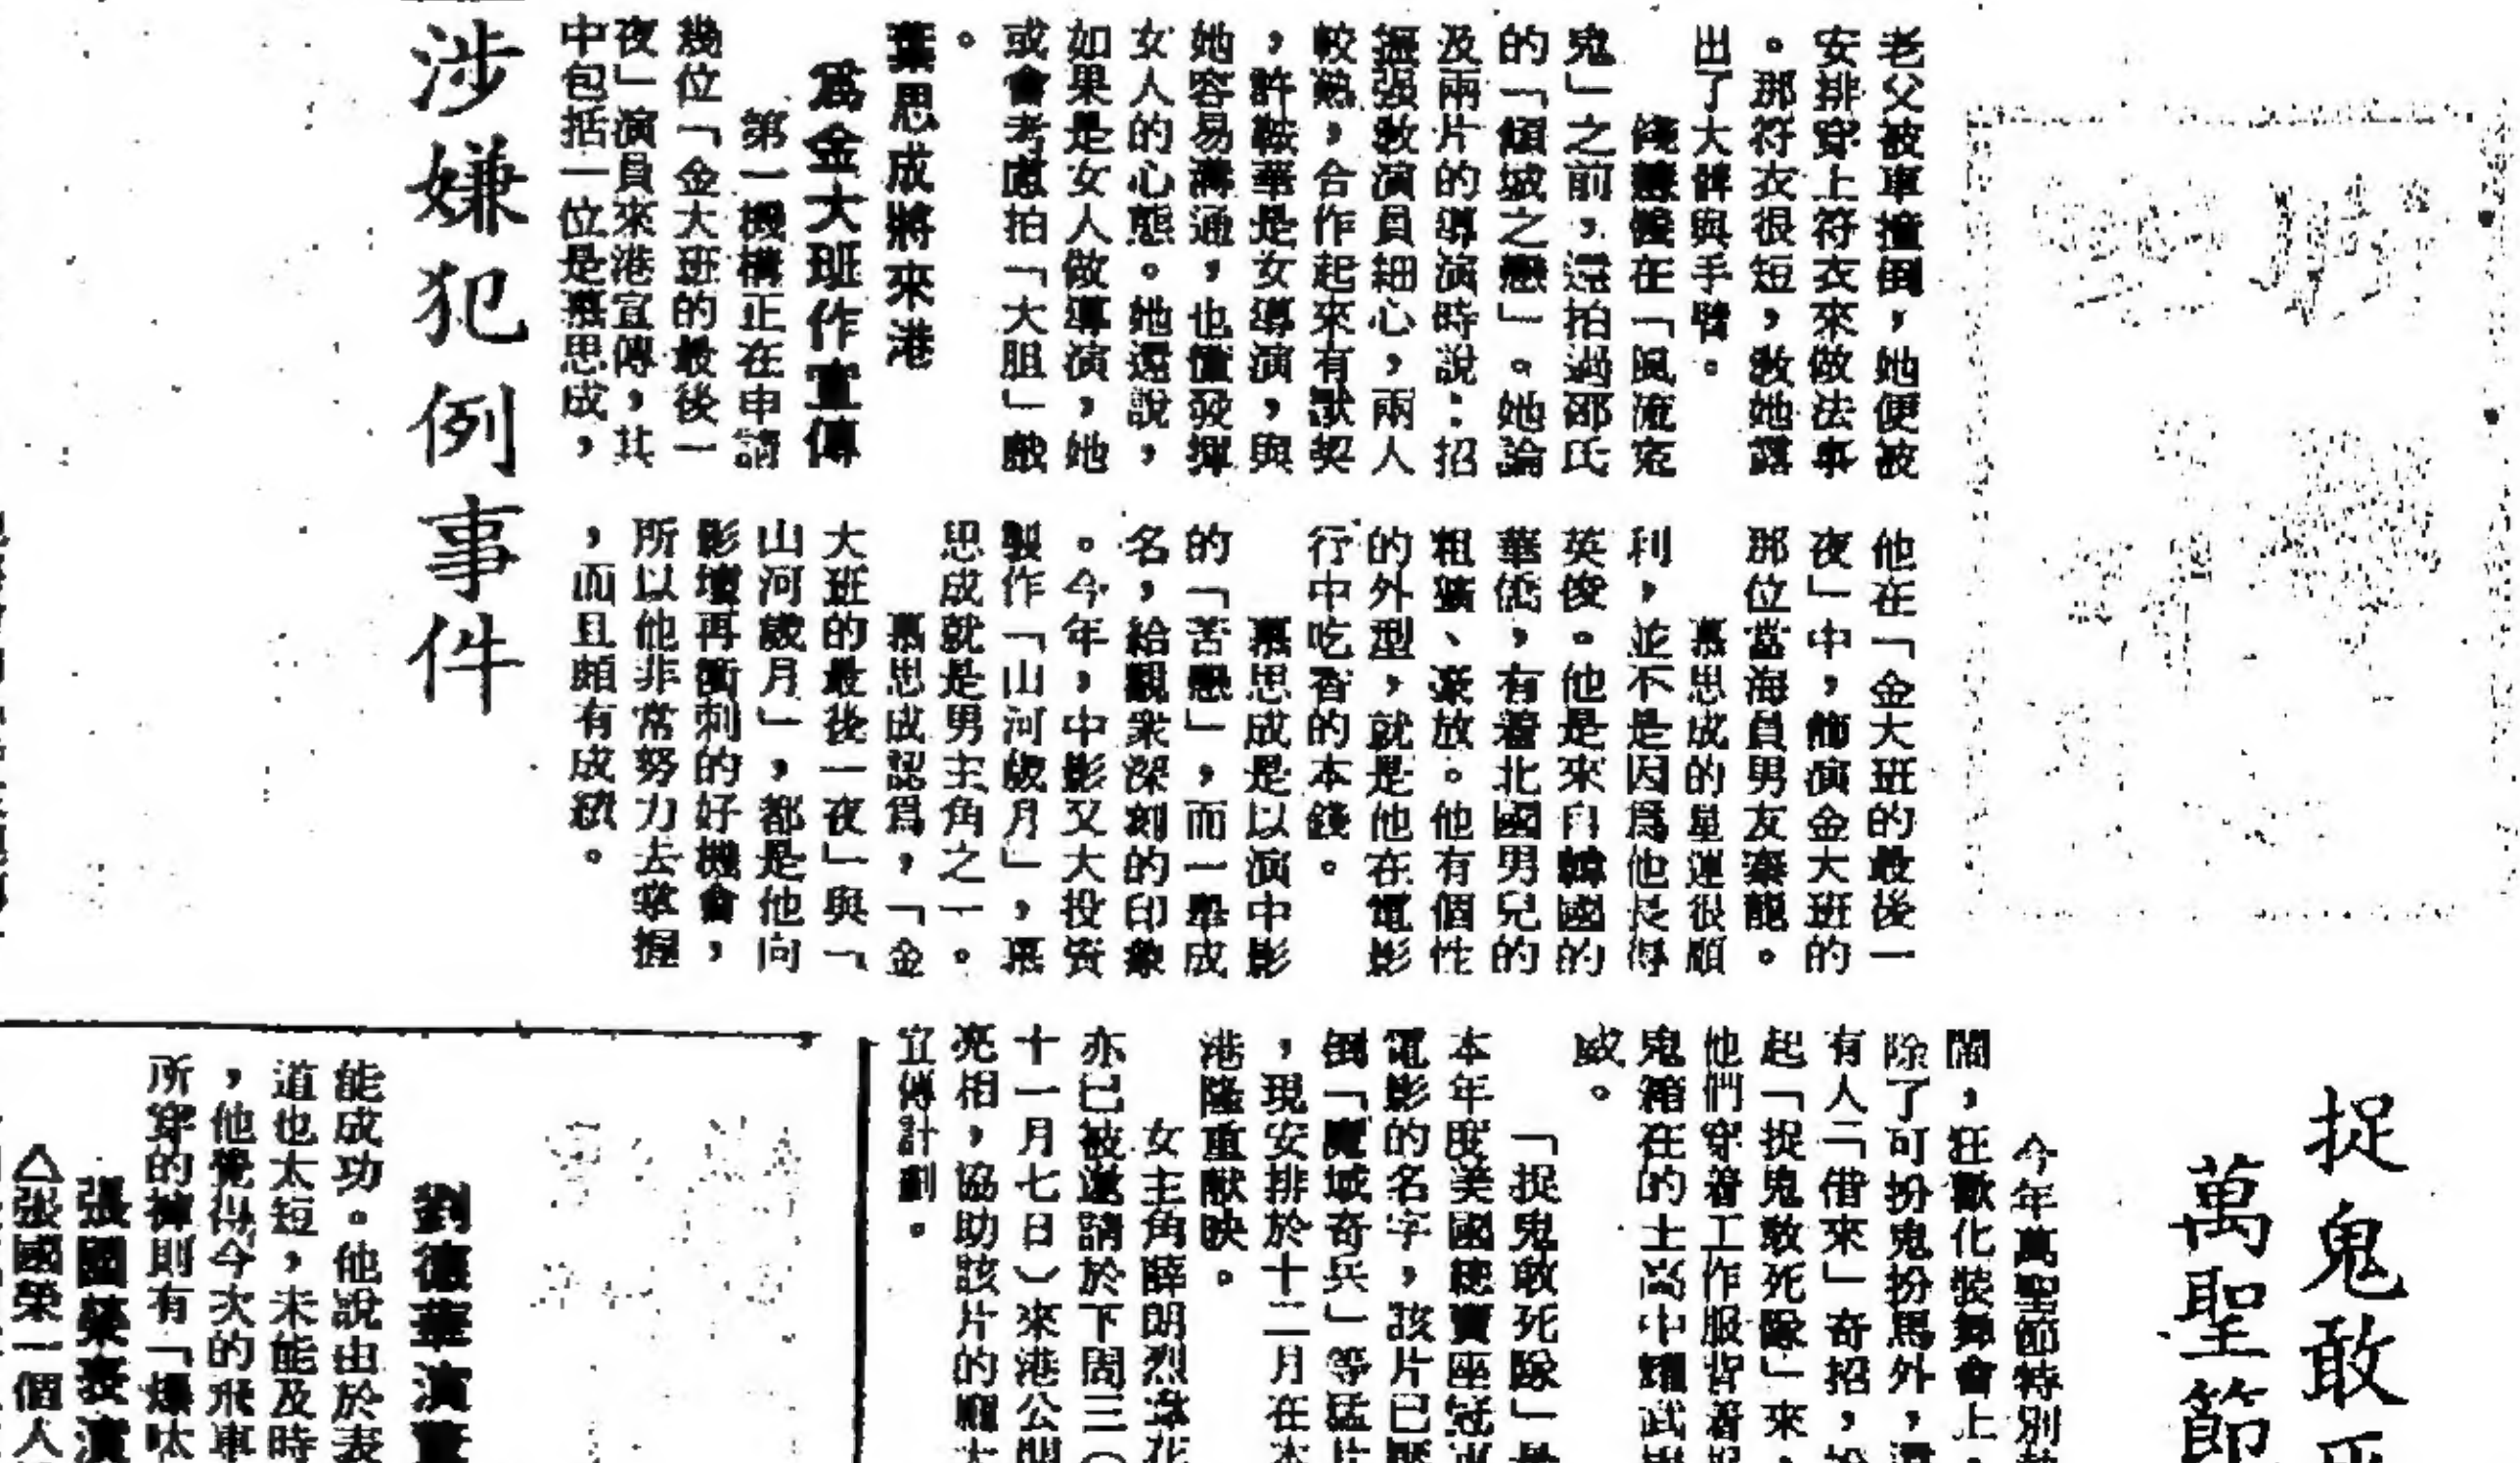 老父被車撞倒，她便被
安排穿上符衣來做法事
。那符衣很短，教她露
出了大髀與手臂。
在「風流寃
鬼」之前，還拍過邵氏
的「傾城之戀」。她論
及兩片的導演時說：招
振强教演員細心，兩人
較熟，合作起來有默契
，許鞍華是女導演，與
她容易溝通，也懂發揮
女人的心態。她還說，
如果是女人做導演，她
或會考慮拍「大胆」戲
。
慕思成將來港
爲金大班作宣傳
第一機構正在申請
幾位「金大班的最後一
夜」演員來港宣傳，其
中包括一位是慕思成，
他在「金大班的最後一
夜」中，飾演金大班的
那位當海員男友秦龍。
慕思成的星運很順
利，並不是因爲他長得
英俊。他是來自韓國的
華僑，有着北國男兒的
粗獷、豪放。他有個性
的外型，就是他在電影
行中吃香的本錢。
慕思成是以演中影
的「苦戀」，而一舉成
名，給觀衆深刻的印象
。今年，中影又大投資
製作「山河歲月」，慕
思成就是男主角之一。
慕思成認爲，「金
大班的最後一夜」與「
山河歲月」，都是他向
影壇再衝刺的好機會，
所以他非常努力去掌握
，而且頗有成績。
涉嫌犯例事件
捉鬼敢
萬聖節
今年萬聖節特別
鬧，狂歡化裝舞會上，
除了可扮鬼扮馬外，還
有人「借來」奇招，扮
起「捉鬼敢死隊」來，
他們穿着工作服背着
鬼箱在的士高中耀武
威。
「捉鬼敢死隊」是
本年度美國總賣座冠
電影的名字，該片已壓
倒「魔域奇兵」等猛片
，現安排於十二月在本
港隆重獻映。
女主角薛朗烈韋花
亦已被邀請於下周三（
十一月七日）來港公開
亮相，協助該片的龐大
宣傳計劃。
劉德華演
能成功。他說由於表
道也太短，未能及時
，他覺得今次的飛車
所穿的褲則有「爆呔
張國榮表演
△張國榮一個人